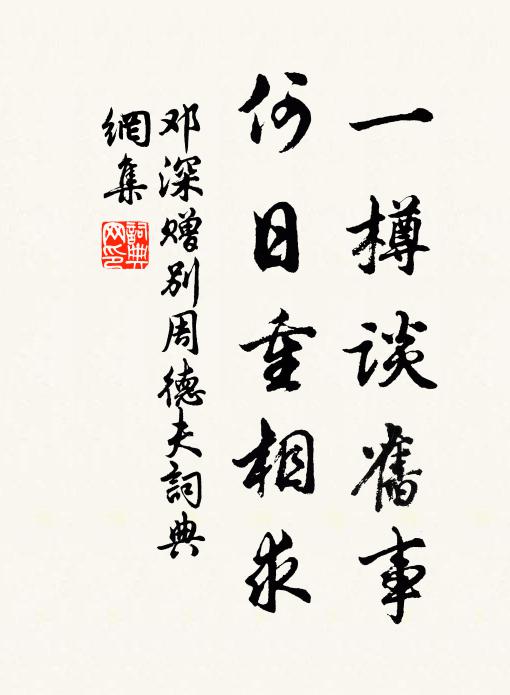 一樽談舊事
何日重相求
邓深赠别周德夫詞典
網集
詞典網印